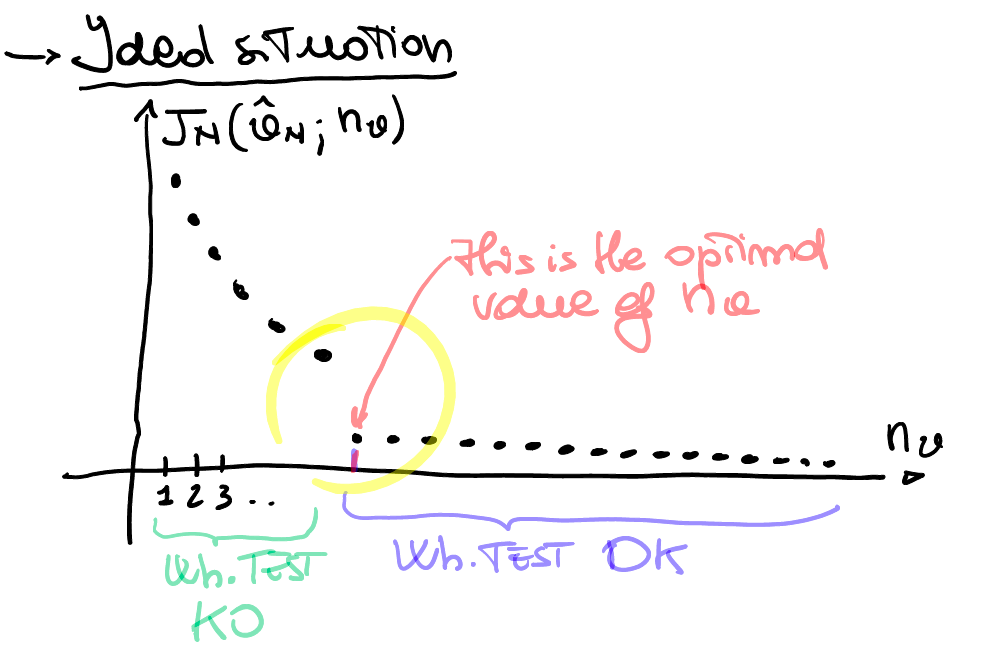 → Ideal situation
J_N(θ̂_N; n_θ)
This is the optimal
value of n_θ
n_θ
1 2 3 ..
Wh. TEST
KO
Wh. TEST OK